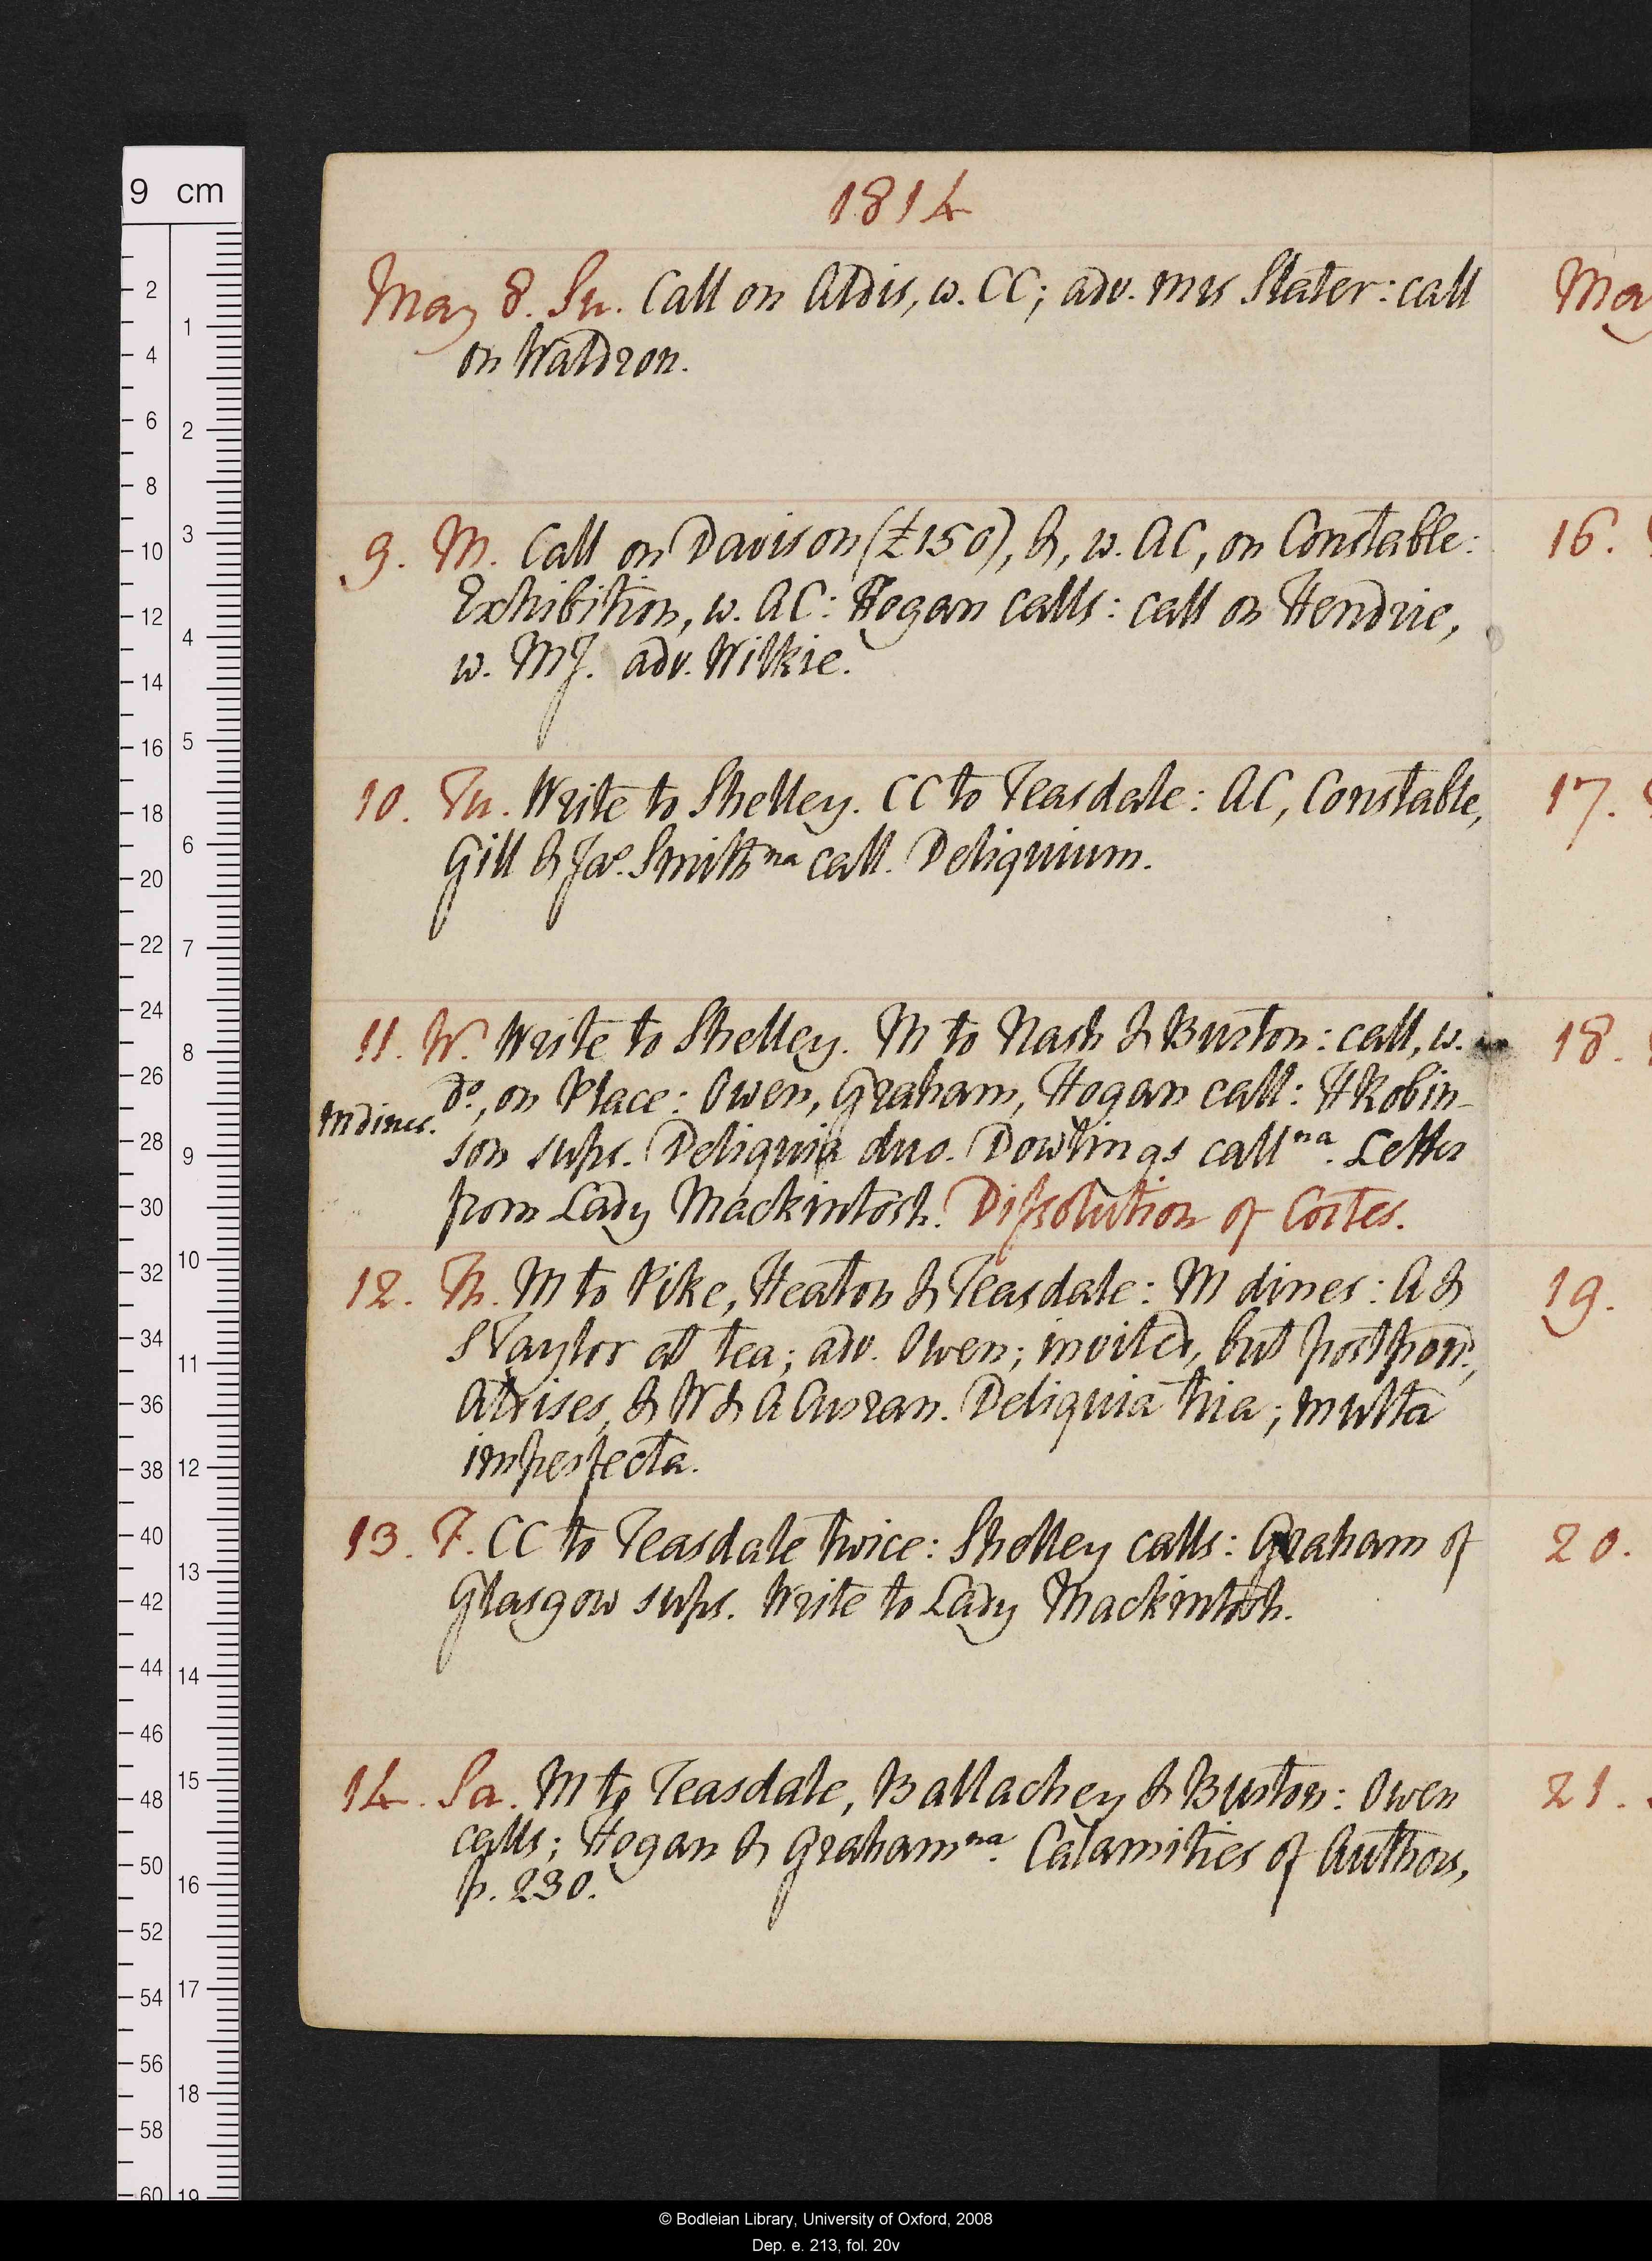 1814
May 8. Su. Call on Aldis, w. CC; adv. Mrs Slater: call
on Waldron.
9. M. Call on Davison (£150), &, w. AC, on Constable:
Exhibition, w. AC: Hogan calls: call on Hendrie,
w. MJ. adv. Wilkie.
10. Tu. Write to Shelley. CC to Teasdale: AC, Constable,
Gill & Jas. Smith na call. Deliquium.
11. W. Write to Shelley. M to Nash & Burton: call, w.
do, on Place: Owen, Graham, Hogan call: HRobin-
M dines.
son sups. Deliquia duo. Dowlings call na. Letter
from Lady Mackintosh. Dissolution of Cortes.
12. Th. M to Pike, Heaton & Teasdale: M dines: A &
S Taylor at tea; adv. Owen; invited, but postpond,
Aldises, & W & A Curran. Deliquia tria; multa
imperfecta.
13. F. CC to Teasdale twice: Shelley calls: Graham of
Glasgow sups. Write to Lady Mackintosh.
14. Sa. M to Teasdale, Ballachey & Burton: Owen
calls; Hogan & Graham na. Calamities of Authors,
p. 230.
May
16.
17.
18.
19.
20.
21.
9 cm
2 4 6 8 10 12 14 16 18 20 22 24 26 28 30 32 34 36 38 40 42 44 46 48 50 52 54 56 58 60
1 2 3 4 5 6 7 8 9 10 11 12 13 14 15 16 17 18 19
© Bodleian Library, University of Oxford, 2008
Dep. e. 213, fol. 20v